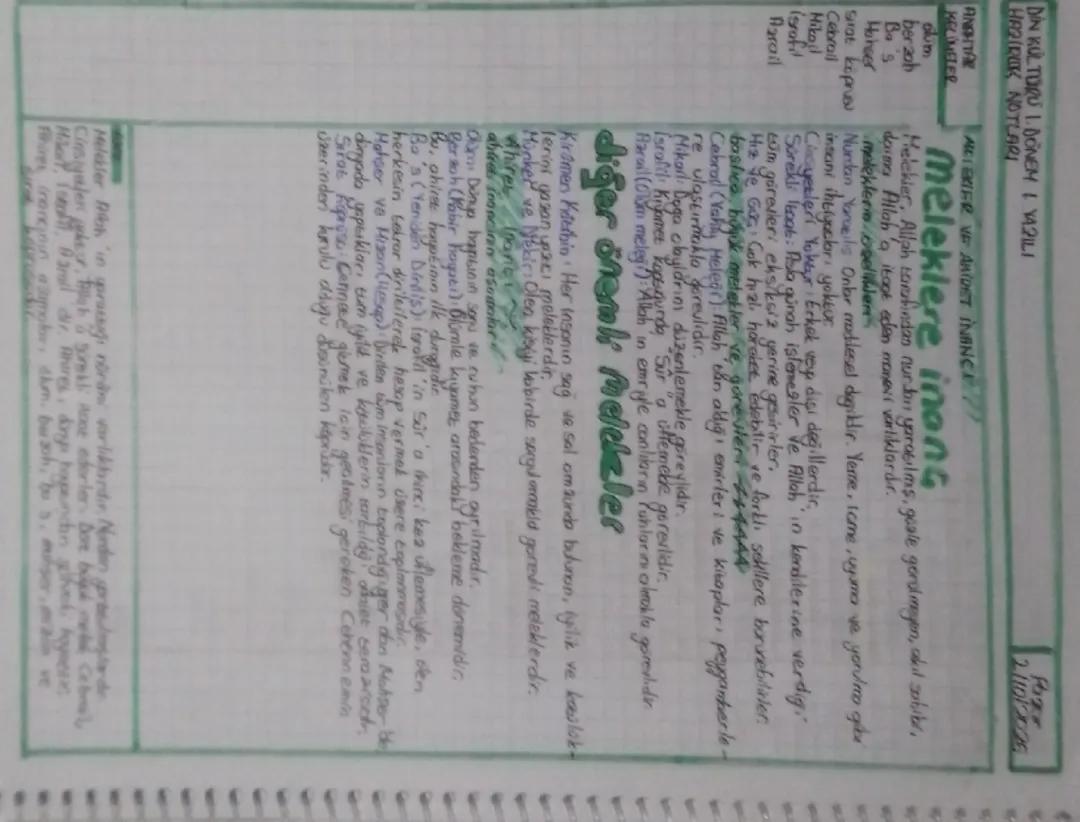 DİN KÜLTÜRÜ 1. DÖNEM 1. YAZILI
HAZIRLIK NOTLARI
21/10/2025
ANAHTAR
KELİMELER
ölüm
berzah
Ba's
Mahşer
sırat köprüsü
Cebrail
Mikail
İsrafil
Azrail
MELEKLER VE AHİRET İNANCI
meleklere inanç
Melekler, Allah tarafından nurdan yaratılmış, gözle görülmeyen, akıl sahibi,
daima Allah'a itaat eden manevi varlıklardır.
meleklerin özellikleri
Nurdan Yaratılış: Onlar maddesel değildir. Yeme, içme, uyuma ve yorulma gibi
insani ihtiyaçları yoktur.
Cinsiyetleri Yoktur: Erkek veya dişi değillerdir.
Sürekli İtaat: Asla günah işlemezler ve Allah'ın kendilerine verdiği
tüm görevleri eksiksiz yerine getirirler.
Hız ve Güç: Çok hızlı hareket edebilir ve farklı şekillere bürünebilirler.
başlıca büyük melekler ve görevleri
Cebrail (Vahiy Meleği): Allah'tan aldığı emirleri ve kitapları peygamberle-
re ulaştırmakla görevlidir.
Mikail: Doğa olaylarını düzenlemekle görevlidir.
İsrafil: Kıyamet koptuğunda "Sûr"a üflemekle görevlidir.
Azrail (Ölüm meleği): Allah'ın emriyle canlıların ruhlarını almakla görevlidir.
diğer önemli Melekler
Kirâmen Kâtibîn: Her insanın sağ ve sol omzunda bulunan, iyilik ve kötülük-
lerini yazan yazıcı meleklerdir.
Münker ve Nekir: Ölen kişiyi kabirde sorgulamakla görevli meleklerdir.
Ahiret İnancı
ahiret inancının aşamaları
Ölüm: Dünya hayatının sonu ve ruhun bedenden ayrılmasıdır.
Berzah (Kabir Hayatı): Ölümle kıyamet arasındaki bekleme dönemidir.
Bu, ahiret hayatının ilk durağıdır.
Ba's (Yeniden Diriliş): İsrafil'in Sûr'a ikinci kez üflemesiyle, ölen
herkesin tekrar dirilerek hesap vermek üzere toplanmasıdır.
Mahşer ve Mizan (Hesap): Dirilen tüm insanların toplandığı yer olan Mahşer'de
dünyada yaptıkları tüm iyilik ve kötülüklerin tartıldığı adalet terazisidir.
Sırat Köprüsü: Cennete girmek için geçilmesi gereken Cehennemin
üzerinden kurulu olduğu düşünülen köprüdür.
Melekler Allah'ın yarattığı nurani varlıklardır. Nurdan yaratılmışlardır.
Cinsiyetleri yoktur, Allah'a sürekli itaat ederler. Dört büyük melek Cebrail,
Mikail, İsrafil, Azrail'dir. Ahiret, dünya hayatından sonraki hayattır.
Ahiret inancının aşamaları ölüm, berzah, ba's, mahşer, mizan ve
sırat köprüsüdür.